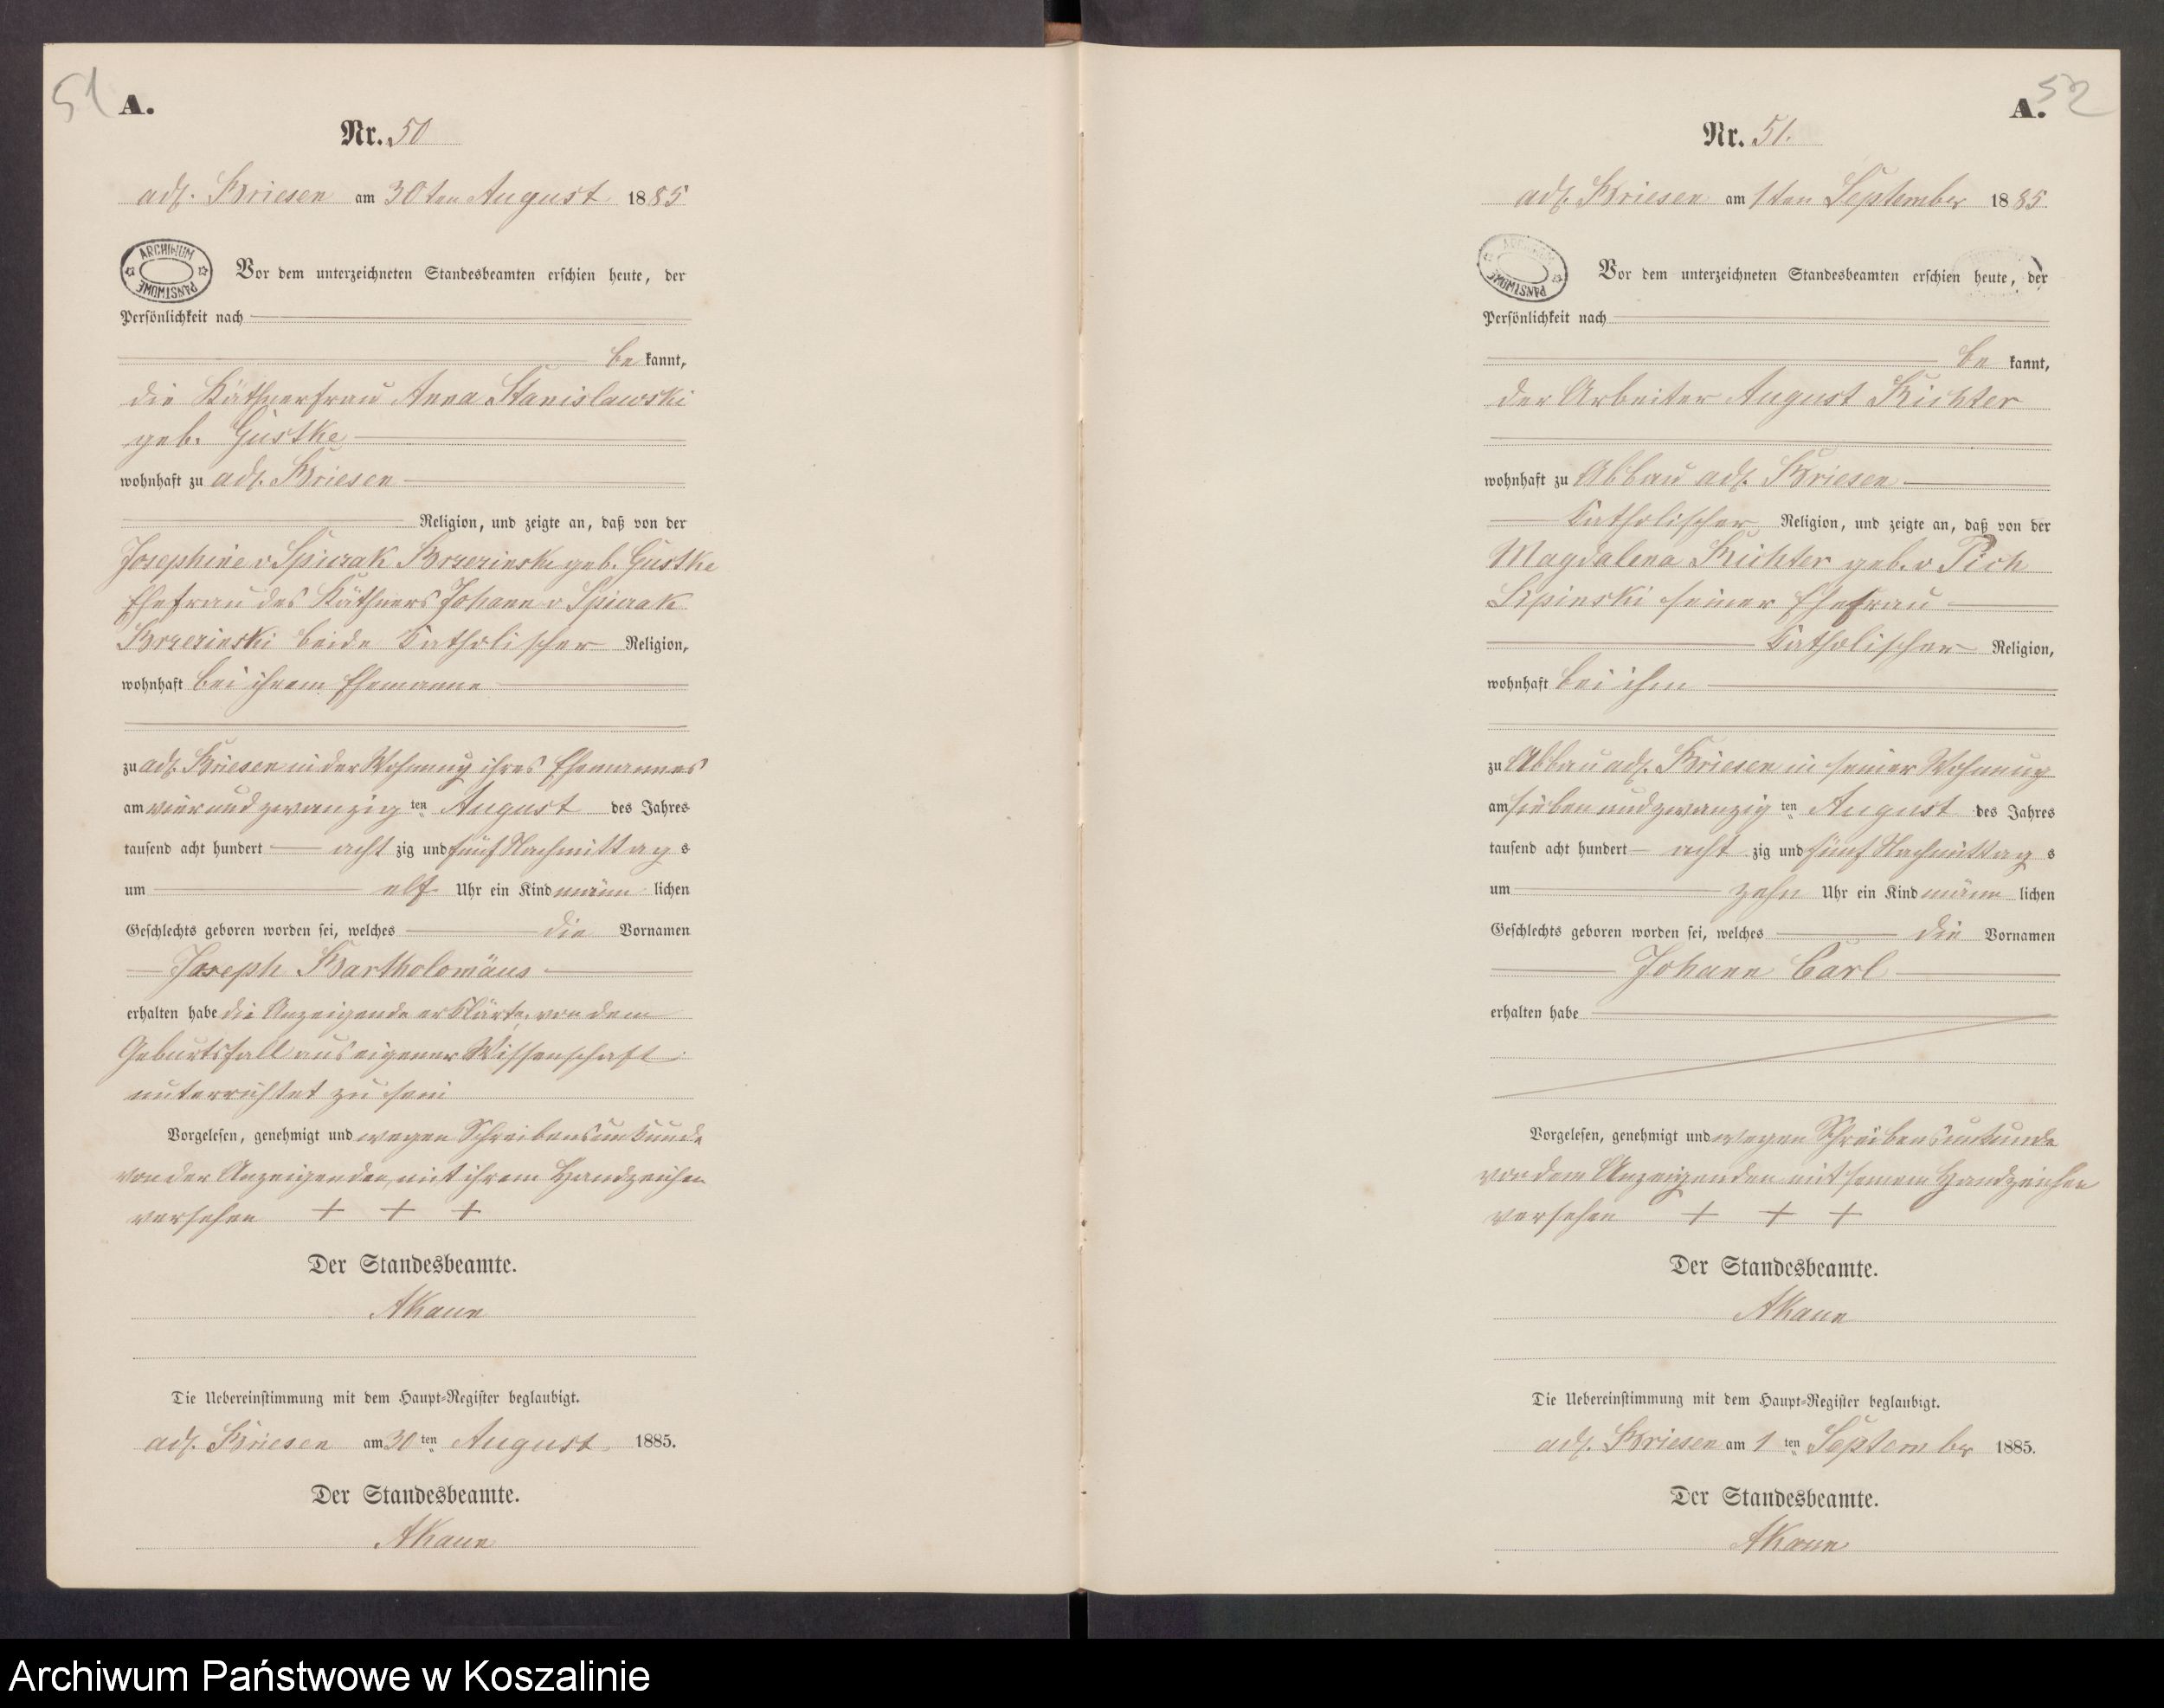 51
A.
Nr. 50
adl. Briesen am 30ten August 1885
ARCHIWUM PAŃSTWOWE
Vor dem unterzeichneten Standesbeamten erschien heute, der
Persönlichkeit nach
be kannt,
die Käthnerfrau Anna Stanislawski
geb. Gustke
wohnhaft zu adl. Briesen
Religion, und zeigte an, daß von der
Josephine v Spiczak Brzezinski geb. Gustke
Ehefrau des Käthners Johann v Spiczak
Brzezinski beide Katholischer Religion,
wohnhaft bei ihrem Ehemanne
zu adl. Briesen in der Wohnung ihres Ehemannes
am vier und zwanzig ten August des Jahres
tausend acht hundert acht zig und fünf Nachmittag s
um elf Uhr ein Kind männ lichen
Geschlechts geboren worden sei, welches die Vornamen
Joseph Bartholomäus
erhalten habe die Anzeigende erklärte, von dem
Geburtsfall aus eigener Wissenschaft
unterrichtet zu sein
Vorgelesen, genehmigt und wegen Schreibensunkunde
von der Anzeigenden mit ihrem Handzeichen
versehen + + +
Der Standesbeamte.
AKaun
Die Uebereinstimmung mit dem Haupt-Register beglaubigt.
adl. Briesen am 30 ten August 1885.
Der Standesbeamte.
AKaun
52
A.
Nr. 51.
adl. Briesen am 1ten September 1885
ARCHIWUM PAŃSTWOWE
Vor dem unterzeichneten Standesbeamten erschien heute, der
Persönlichkeit nach
be kannt,
der Arbeiter August Richter
wohnhaft zu Abbau adl. Briesen
Katholischer Religion, und zeigte an, daß von der
Magdalena Richter geb. v Pich
Lipinski seiner Ehefrau
Katholischer Religion,
wohnhaft bei ihm
zu Abbau adl. Briesen in seiner Wohnung
am sieben und zwanzig ten August des Jahres
tausend acht hundert acht zig und fünf Nachmittag s
um zehn Uhr ein Kind männ lichen
Geschlechts geboren worden sei, welches die Vornamen
Johann Carl
erhalten habe
Vorgelesen, genehmigt und wegen Schreibensunkunde
von dem Anzeigenden mit seinem Handzeichen
versehen + + +
Der Standesbeamte.
AKaun
Die Uebereinstimmung mit dem Haupt-Register beglaubigt.
adl. Briesen am 1 ten September 1885.
Der Standesbeamte.
AKaun
Archiwum Państwowe w Koszalinie